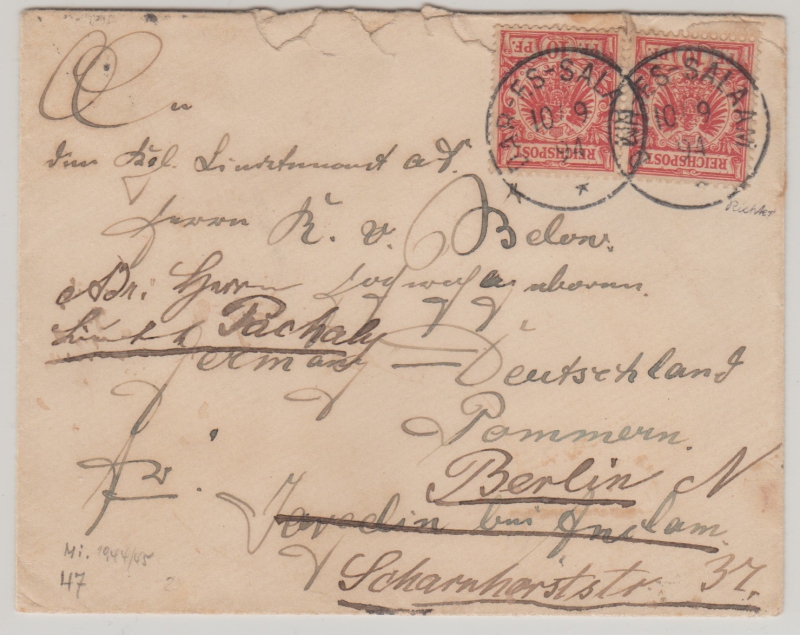 DAR-ES-SALAAM
10 9
94
DAR-ES-SALAAM
10 9
94
10 PF.
REICHSPOST
10 PF.
REICHSPOST
Richter
An
den Kgl. Lieutenant a.D.
Herrn K. v. Below.
Adr. Herrn Hochwohlgeboren.
Lieut. Pachaly
Germany — Deutschland
Pommern.
fr.
Berlin N
bei Anclam.
Scharnhorststr 37.
Mi. 1944/45
47